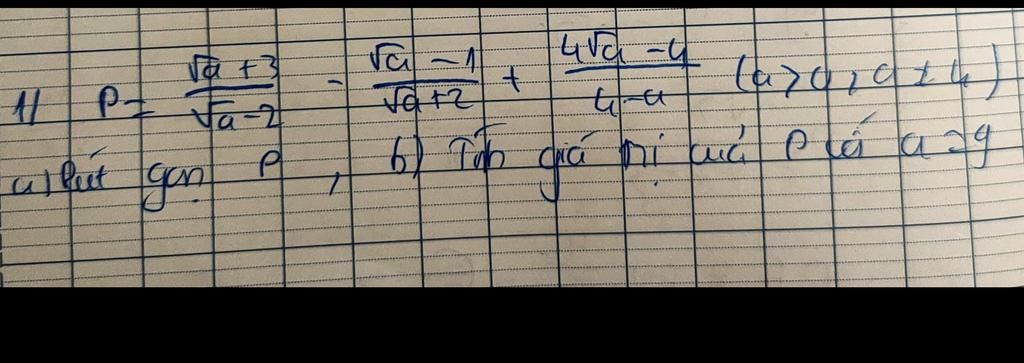 1) P = \frac{\sqrt{a}+3}{\sqrt{a}-2} - \frac{\sqrt{a}-1}{\sqrt{a}+2} + \frac{4\sqrt{a}-4}{4-a} (a > 0 ; a ≠ 4)
a) Rút gọn P , b) Tính giá trị của P với a = 9